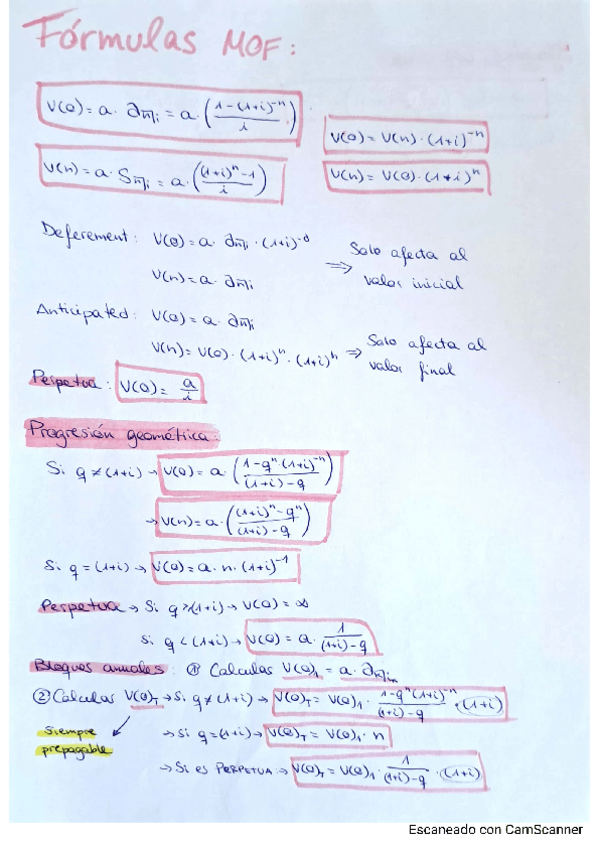 Fórmulas MOF:
V(0) = a · a n̅|i = a · ( (1-(1+i)^-n) / i )
V(0) = V(n) · (1+i)^-n
V(n) = a · S n̅|i = a · ( ((1+i)^n - 1) / i )
V(n) = V(0) · (1+i)^n
Deferement: V(0) = a · a n̅|i · (1+i)^-d
V(n) = a · a n̅|i
⇒ Solo afecta al
valor inicial
Anticipated: V(0) = a · a n̅|i
V(n) = V(0) · (1+i)^n · (1+i)^h
⇒ Solo afecta al
valor final
Perpetua: V(0) = a / i
Progresión geomética:
Si q ≠ (1+i) → V(0) = a · ( (1-q^n · (1+i)^-n) / ((1+i)-q) )
→ V(n) = a · ( ((1+i)^n - q^n) / ((1+i)-q) )
Si q = (1+i) → V(0) = a · n · (1+i)^-1
Perpetua → Si q ≥ (1+i) → V(0) = ∞
Si q < (1+i) → V(0) = a · 1 / ((1+i)-q)
Bloques anuales: ① Calculas V(0)₁ = a · a m̅|im
② Calculas V(0)T → Si q ≠ (1+i) → V(0)T = V(0)₁ · (1-q^n (1+i)^-n) / ((1+i)-q) · (1+i)
Siempre
prepagable
→ Si q = (1+i) → V(0)T = V(0)₁ · n
→ Si es PERPETUA: → V(0)T = V(0)₁ · 1 / ((1+i)-q) · (1+i)
Escaneado con CamScanner